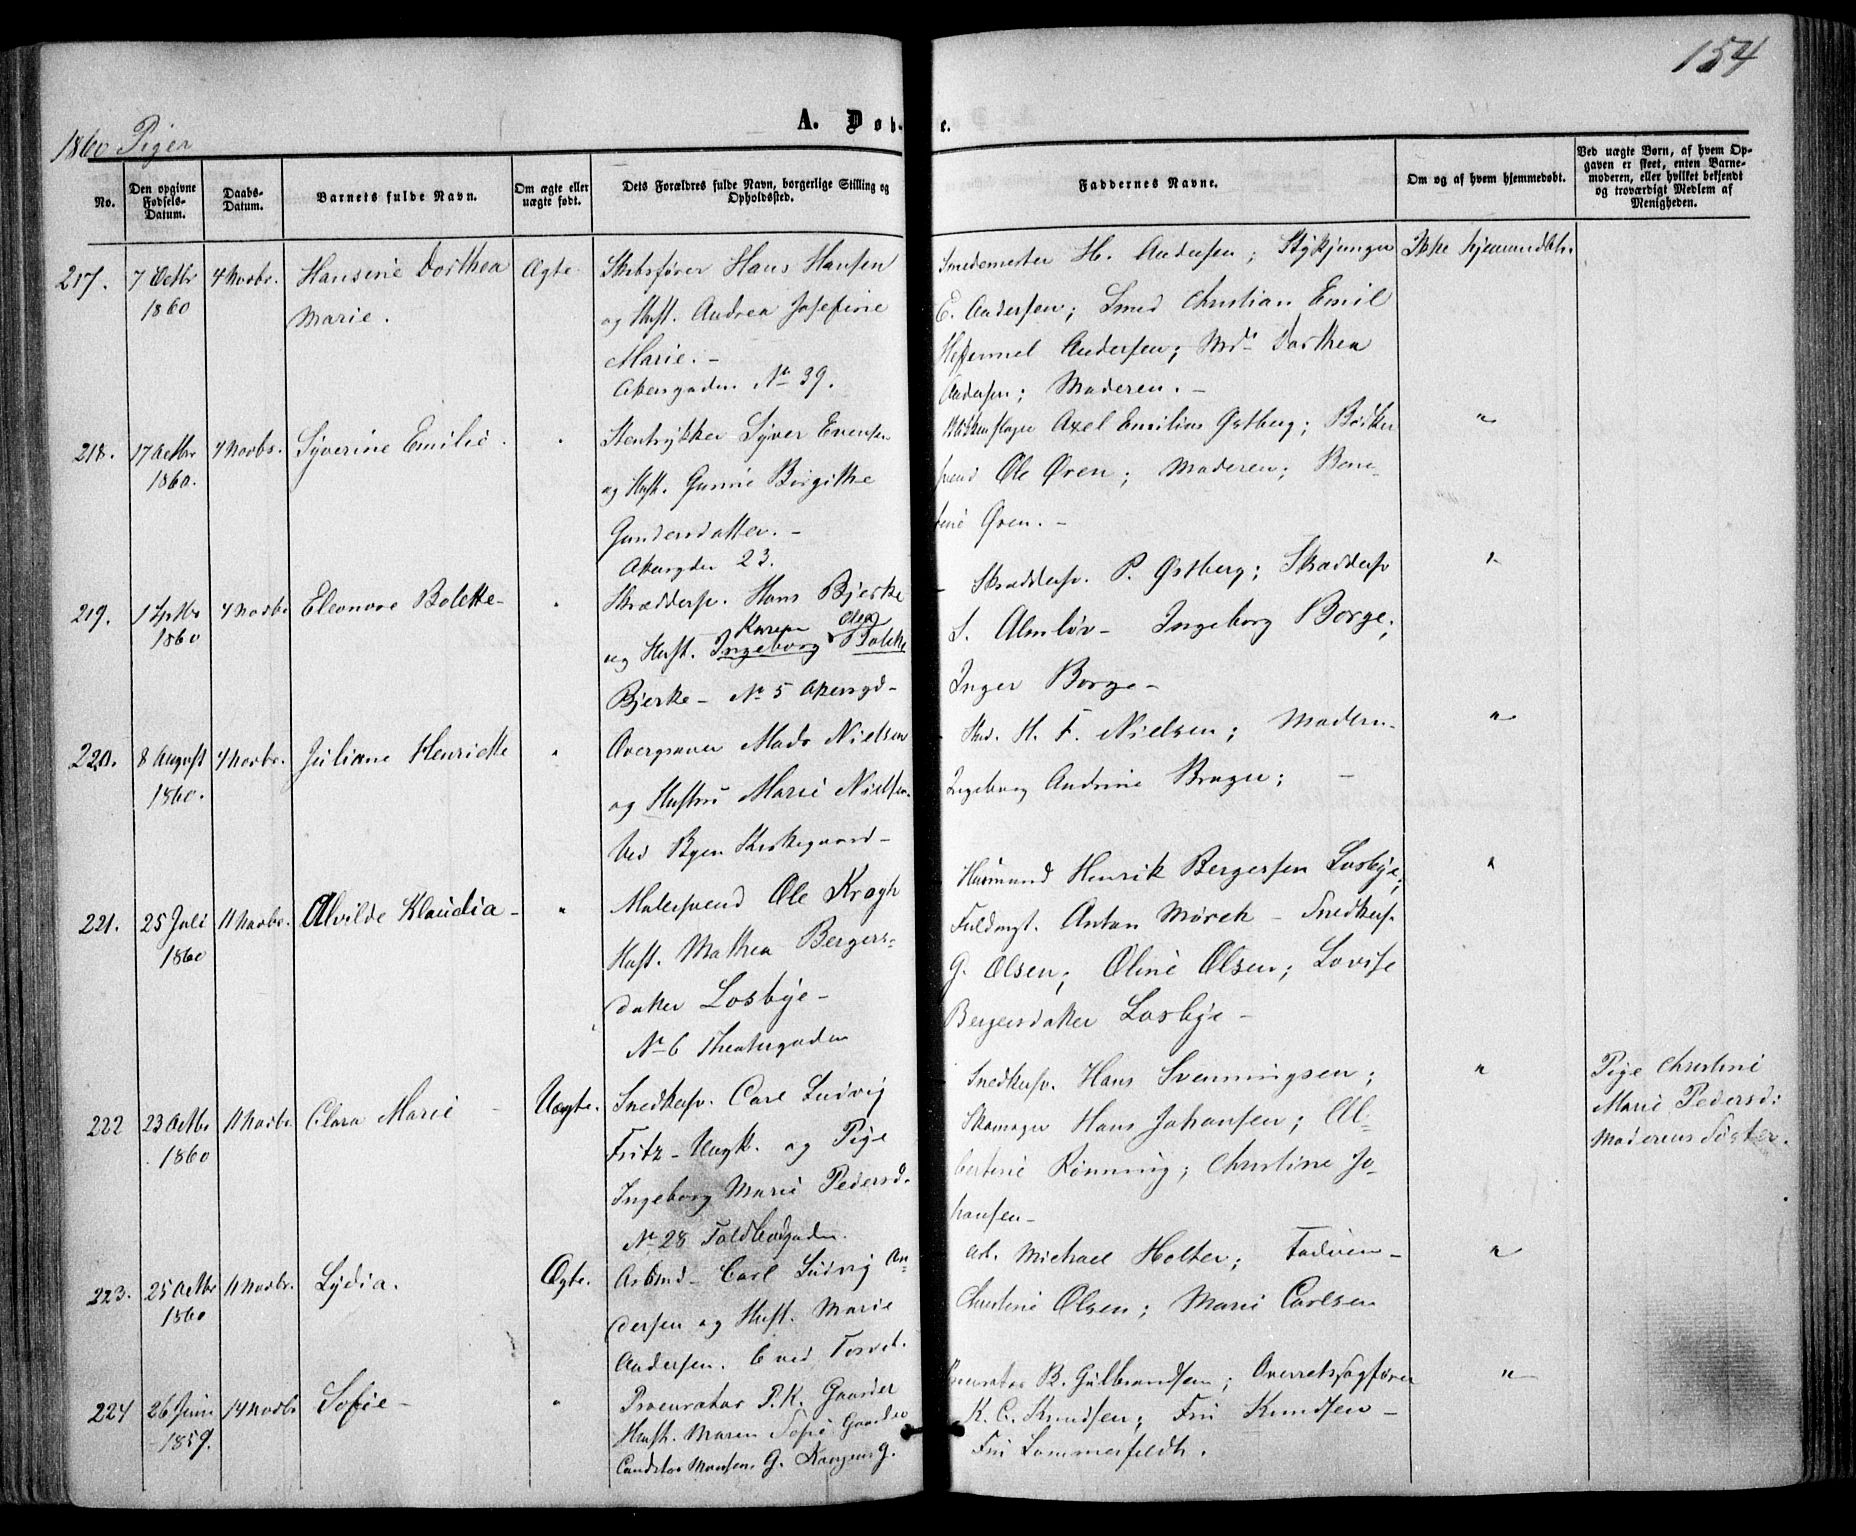 154
1860 Piger
A. Døb- e.
No.
Den opgivne Fødsels-Datum.
Daabs-Datum.
Barnets fulde Navn.
Om ægte eller uægte født.
Dets Forældres fulde Navn, borgerlige Stilling og Opholdssted.
Faddernes Navne.
Om og af hvem hjemmedøbt.
Ved uægte Børn, af hvem Opgaven er skeet, enten Barnemoderen, eller hvilket bekjendt og troværdigt Medlem af Menigheden.
217. 7 Octbr 1860 4 Novbr. Hansene Dorthea Marie. Ægte
Skibsfører Hans Hansen
og Hust. Andrea Josefine
Marie. -
Akersgaden No 39.
Smedemester H. Andersen;
E. Andersen; Smed Christian Emil
Andersen; Md. Dorthea
Andersen; Moderen. -
Ikke hjemmedøbt.
218. 17 Octbr 1860. 4 Novbr. Syverine Emilie. "
Stentrykker Syver Evensen
og Hust. Gunnie Birgithe
Gundersdatter. -
Akersgden 23.
Blikkenslager Axel Emilius Østberg; Bødker
svend Ole Øren; Moderen;
Øren. -
"
219. 1 Septbr 1860 4 Novbr Eleonore Bolette - "
Skræddersv. Hans Bjerke
Karen Olea
og Hust. Ingeborg Bolette
Bjerke - No 5 Akersgd -
Skræddersv. P. Østberg; Skræddersv
S. Almløv - Ingeborg Borge;
Inger Borge -
"
220. 8 August 1860. 4 Novbr. Juliane Henriette "
Overgraver Mads Nielsen
og Hustru Marie Nielsen.
Ved Byen Kirkegaard -
H. F. Nielsen; Moderen
Ingeborg Andrine; -
"
221. 25 Juli 1860 11 Novbr. Alvilde Klaudia - "
Malersvend Ole Krogh
Hust. Mathea Bergers-
datter Losbye -
No 6 Theatergaden
Husmand Henrik Bergersen Losbye;
Fuldmgt. Anton Mørch - Snedkersv.
G. Olsen; Oline Olsen; Lovise
Bergersdatter Losbye -
"
222 23 Octbr. 1860 11 Novbr Clara Marie - Uægte.
Snedkersv. Carl Ludvig
Fritz - Ungk. og Pige
Ingeborg Marie Pedersd.
No 28
Snedkersv. Hans Svenningsen;
Skomager Hans Johansen; Al-
bertine Rønning; Christine Jo-
hansen -
"
Pige Christine
Marie Pedersd:
Moderens Søster.
223. 25 Octbr 1860 11 Novbr. Lydia. Ægte.
Arbmd - Carl Ludvig An-
dersen og Hust. Marie
Andersen. 6 ved Torvet.
Arb. Michael Holter;
Christine Olsen; Marie Carlsen
"
224 26 Juni 1859. 14 Novbr Sofie - "
Procurator P. K. Gaarder
Hust. Maren Sofie Gaarder
G. Kongens G.
Procurator B. Gulbrandsen; Overretssagfører
K. C. Knudsen; Fru Knudsen -
Fru Sommerfeldt.
"